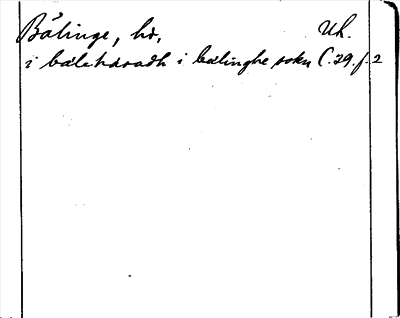 Bälinge, hd, Uh.
i balehäradh i balinghe sokn C.29.f.2